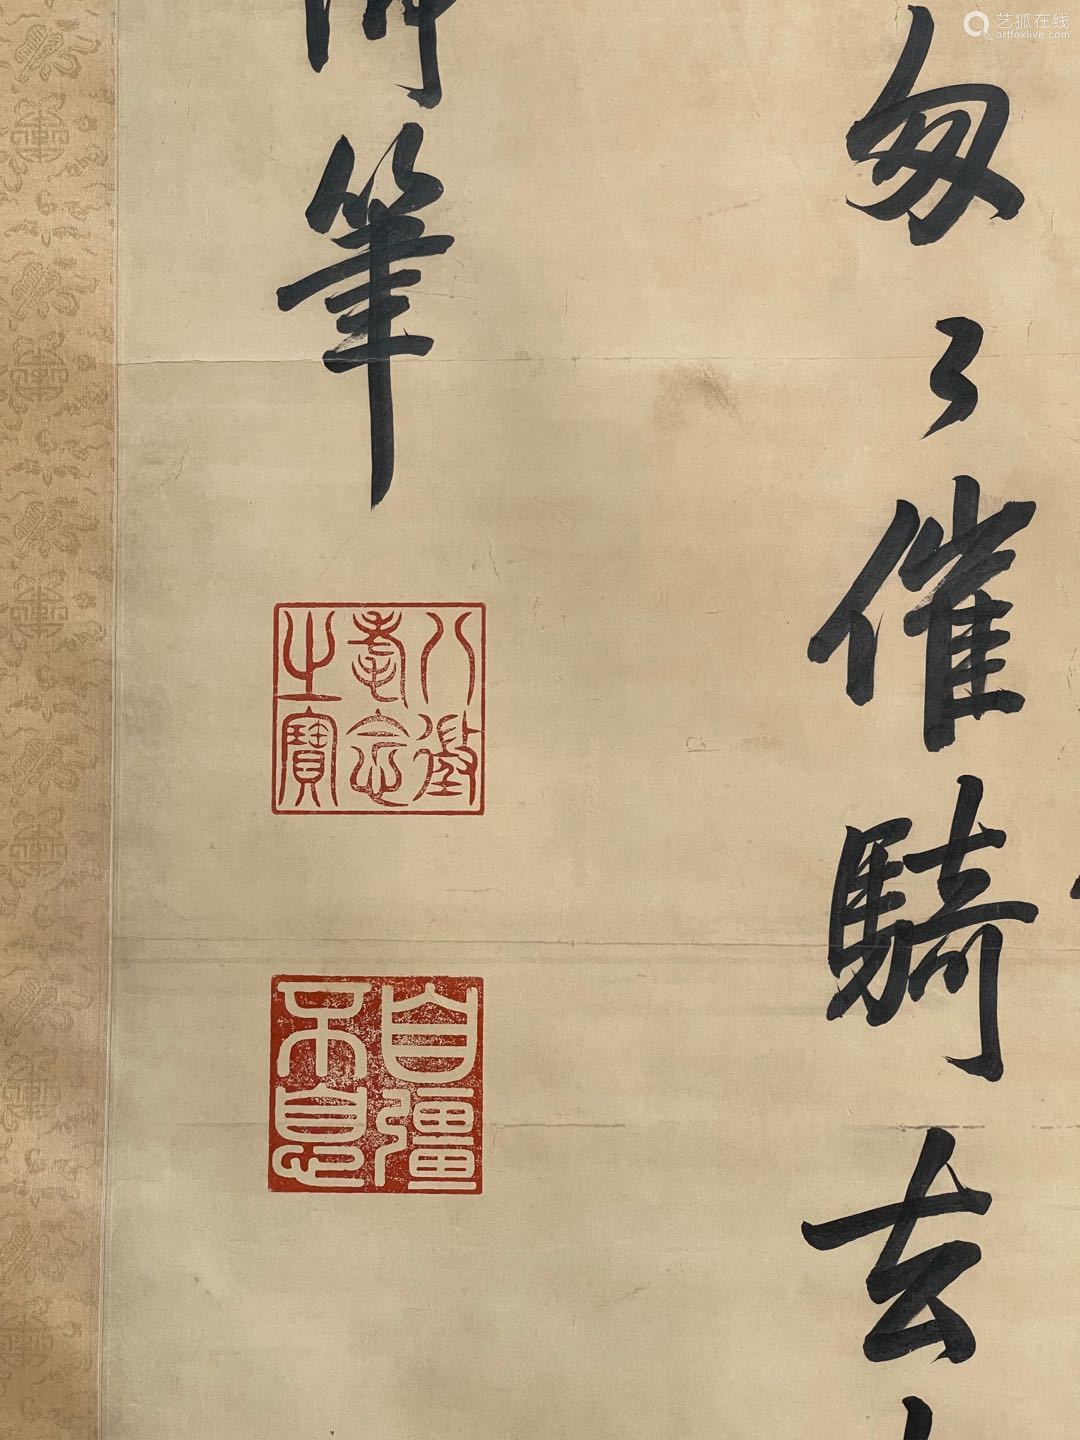 匆〻催騎去
御筆
八徵耄念之寶
自彊不息
艺狐在线
artfoxlive.com